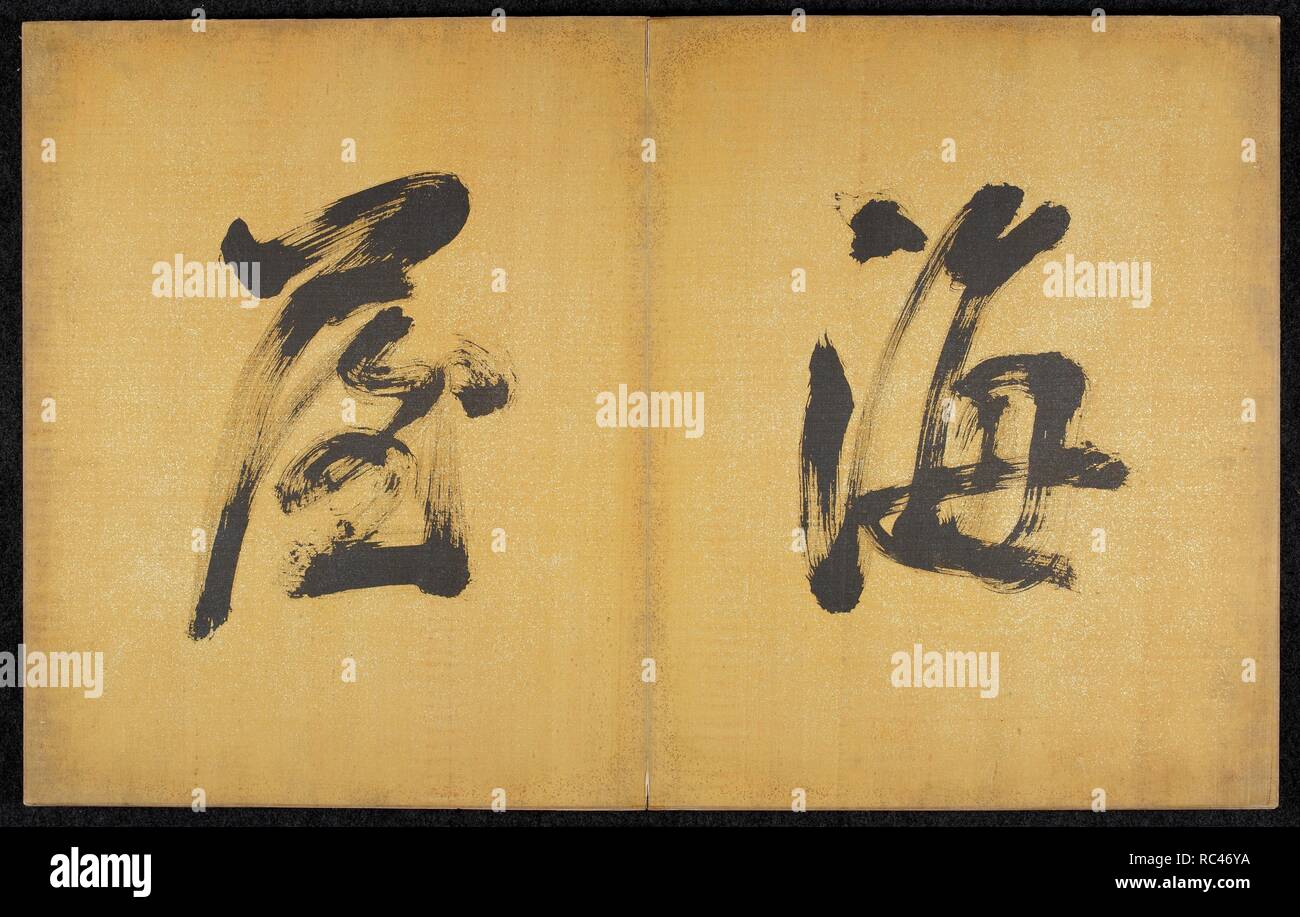 海
屋
alamy
alamy
alamy
alamy
alamy
alamy
Image ID: RC46YA
www.alamy.com